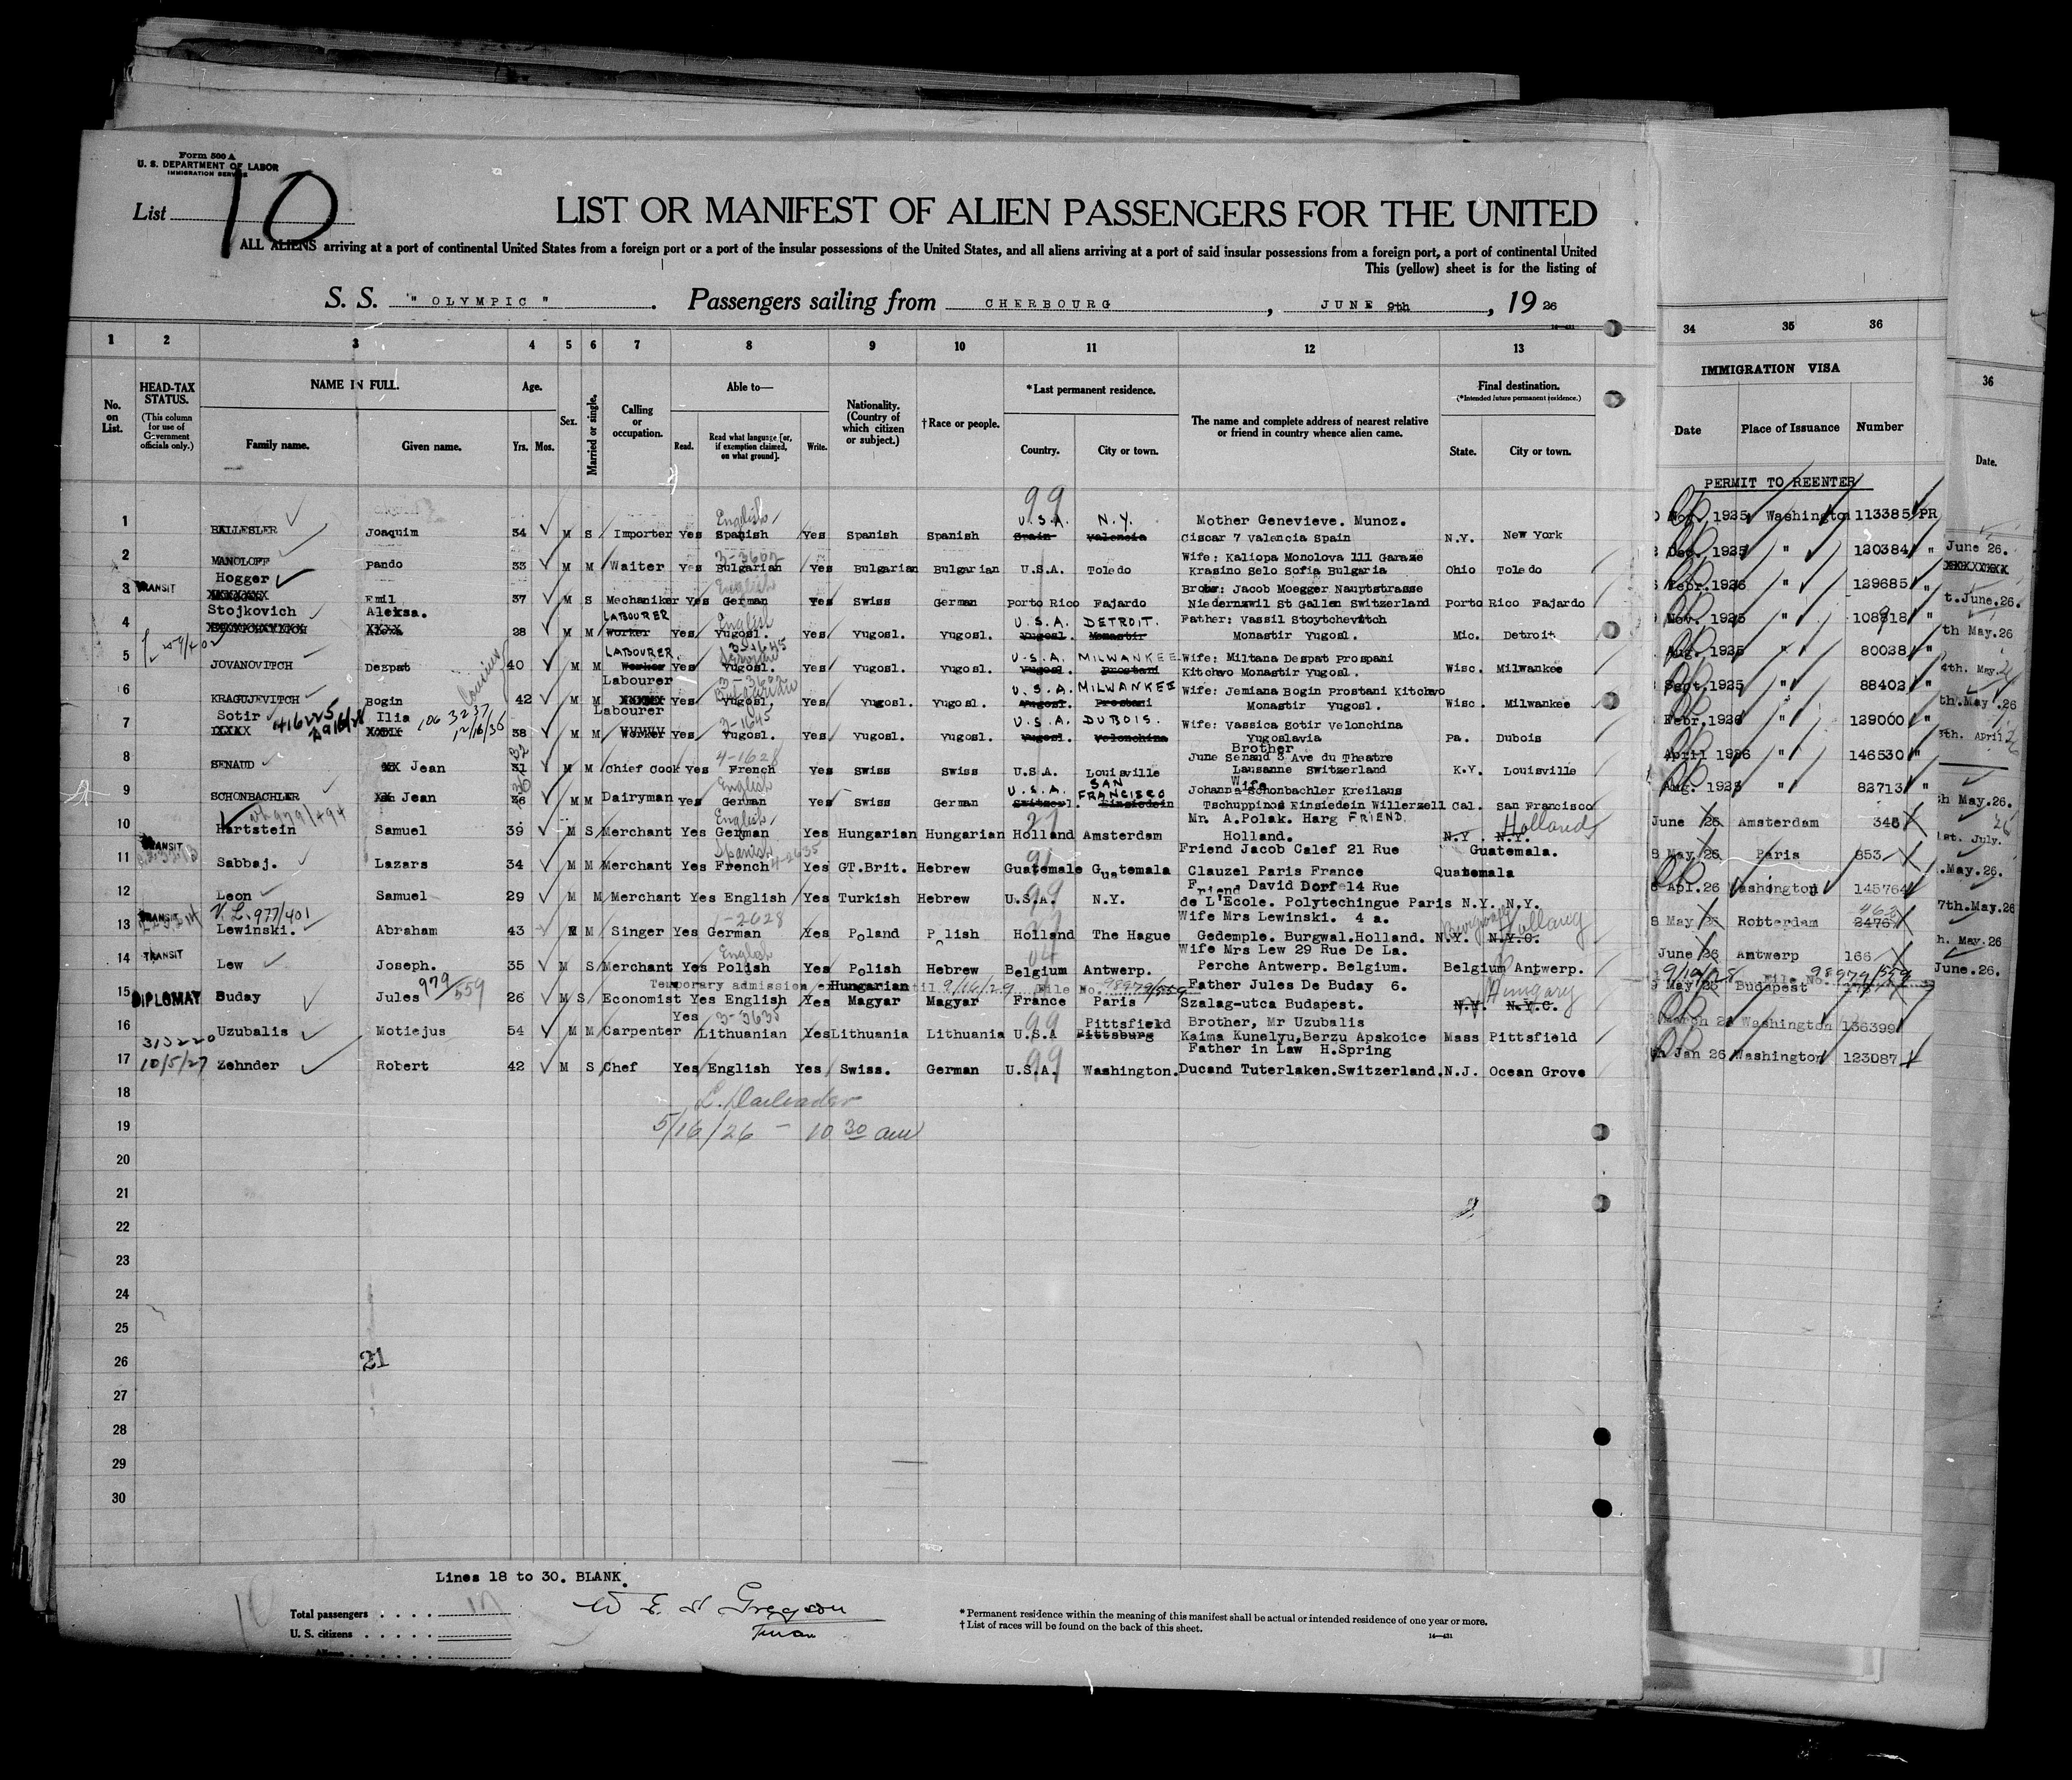 Form 500 A
U. S. DEPARTMENT OF LABOR
IMMIGRATION SERVICE
List 10
LIST OR MANIFEST OF ALIEN PASSENGERS FOR THE UNITED
ALL ALIENS arriving at a port of continental United States from a foreign port or a port of the insular possessions of the United States, and all aliens arriving at a port of said insular possessions from a foreign port, a port of continental United
This (yellow) sheet is for the listing of
S. S. "OLYMPIC". Passengers sailing from CHERBOURG, JUNE 9th, 1926
1 2 3 4 5 6 7 8 9 10 11 12 13 34 35 36
No. on List.
HEAD-TAX STATUS. (This column for use of Government officials only.)
NAME IN FULL. Family name. Given name.
Age. Yrs. Mos.
Sex.
Married or single.
Calling or occupation.
Able to— Read. Read what language [or, if exemption claimed, on what ground]. Write.
Nationality. (Country of which citizen or subject.)
†Race or people.
*Last permanent residence. Country. City or town.
The name and complete address of nearest relative or friend in country whence alien came.
Final destination. (*Intended future permanent residence.) State. City or town.
IMMIGRATION VISA
Date Place of Issuance Number
36
Date.
PERMIT TO REENTER
99
English
U.S.A. N.Y. Mother Genevieve. Munoz.
1 BALLESLER Joaquim 34 M S Importer Yes Spanish Yes Spanish Spanish Spain Valencia Ciscar 7 Valencia Spain N.Y. New York Nov. 1925 Washington 113385 PR
3-3662
Wife: Kaliopa Monolova 111 Garaze
2 MANOLOFF Pando 33 M M Waiter Yes Bulgarian Yes Bulgarian Bulgarian U.S.A. Toledo Krasino Selo Sofia Bulgaria Ohio Toledo Dec. 1925 " 120384 " June 26.
Hogger English
Jacob Moegger Nauptstrasse
3 TRANSIT Emil 37 M S Mechaniker Yes German Yes Swiss German Porto Rico Fajardo Niedernzwil St Gallen Switzerland Porto Rico Fajardo Febr. 1926 " 129685 " t.June.26.
Stojkovich Aleksa. LABOURER English U.S.A. DETROIT. Father: Vassil Stoytchevitch
4 28 M M Worker Yes Yugosl. Yes Yugosl. Yugosl. Yugosl. Monastir Monastir Yugosl. Mic. Detroit Nov. 1925 " 108818 " th May.26
LABOURER U.S.A. MILWANKEE Wife: Miltana Despat Prospani
5 JOVANOVITCH Despat 40 M M Worker Yes Yugosl. Yes Yugosl. Yugosl. Yugosl. Prostani Kitchvo Monastir Yugosl. Wisc. Milwankee Aug. 1925 " 80028 " 4th. May. 26
Labourer U.S.A. MILWANKEE Wife: Jemiana Bogin Prostani Kitchvo
6 KRAGUJEVITCH Bogin 42 M M Yes Yugosl. Yes Yugosl. Yugosl. Yugosl. Prostani Monastir Yugosl. Wisc. Milwankee Sept. 1925 " 88402 " th.May.26
Sotir Ilia 106 3237 12/16/36 Labourer 3-1645 U.S.A. DUBOIS. Wife: Vassica Sotir Velonchina
7 38 M M Worker Yes Yugosl. Yes Yugosl. Yugosl. Yugosl. Velonchina Yugoslavia Pa. Dubois Febr. 1926 " 129060 " th. April 26
32 4-1628 Brother
June Senaud 3 Ave du Theatre
8 SENAUD Jean 31 M M Chief Cook Yes French Yes Swiss Swiss U.S.A. Louisville Lausanne Switzerland K.Y. Louisville April 1926 " 146530 "
English U.S.A. SAN FRANCISCO Wife
Johanna Schonbachler Kreilaus
9 SCHONBACHLER Jean 36 M M Dairyman Yes German Yes Swiss German Switzerl. Einsiedein Tschuppinos Einsiedein Willerzell Cal. San Francisco Aug. 1925 " 82713 " h May.26.
English 27 Mr. A.Polak. Harg FRIEND. Holland
10 Hartstein Samuel 39 M S Merchant Yes German Yes Hungarian Hungarian Holland Amsterdam Holland. N.Y. N.Y. June 26 Amsterdam 348 1st. July. 26
TRANSIT Spanish 4-2635 Friend Jacob Calef 21 Rue Guatemala.
11 Sabbaj. Lazars 34 M M Merchant Yes French Yes GT.Brit. Hebrew Guatemale Guatemala Clauzel Paris France Guatemala May 26 Paris 853 .May.26.
99 Friend David Dorfel4 Rue
12 Leon Samuel 29 M M Merchant Yes English Yes Turkish Hebrew U.S.A. N.Y. de L'Ecole. Polytechingue Paris N.Y. N.Y. Apl.26 Washington 145764 7th.May.26
TRANSIT V.L.977/401 1-2628 Wife Mrs Lewinski. 4 a. Holland
13 Lewinski. Abraham 43 M M Singer Yes German Yes Poland Polish Holland The Hague Gedemple. Burgwal.Holland. N.Y. N.Y.C. May 26 Rotterdam 2476 h. May.26
TRANSIT English 04 Wife Mrs Lew 29 Rue De La.
14 Lew Joseph. 35 M S Merchant Yes Polish Yes Polish Hebrew Belgium Antwerp. Perche Antwerp. Belgium. Belgium Antwerp. June 26 Antwerp 166 June.26.
979/559 Temporary admission Hungarian 9/16/29 File No. 98979/559 Father Jules De Buday 6. Hungary 9/10/28 File No. 98979/559
15 DIPLOMAT Buday Jules 26 M S Economist Yes English Yes Magyar Magyar France Paris Szalag-utca Budapest. N.Y. N.Y.C. May 26 Budapest
Yes 3-3635 99 Pittsfield Brother, Mr Uzubalis
16 Uzubalis Motiejus 54 M M Carpenter Lithuanian Yes Lithuania Lithuania U.S.A Pittsburg Kaima Kunelyu,Berzu Apskoice Mass Pittsfield March 26 Washington 136399
313220 99 Father in Law H.Spring
17 10/5/27 Zehnder Robert 42 M S Chef Yes English Yes Swiss. German U.S.A. Washington. Ducand Tuterlaken.Switzerland. N.J. Ocean Grove Jan 26 Washington 123087
18
19 5/16/26 - 10 30 am
20
21
22
23
24
25
26 21
27
28
29
30
Lines 18 to 30. BLANK.
Total passengers . . . . 17
U. S. citizens . . . . .
* Permanent residence within the meaning of this manifest shall be actual or intended residence of one year or more.
† List of races will be found on the back of this sheet.